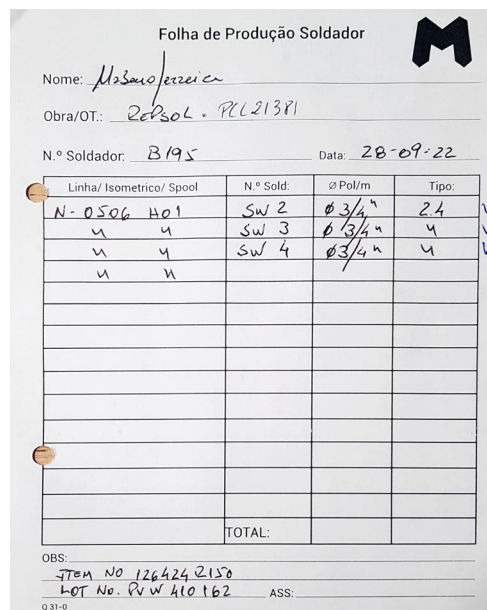 Folha de Produção Soldador
M
Nome: Ferreira
Obra/OT.: REPSOL - PCL21381
N.º Soldador: B195 Data: 28-09-22
Linha/ Isometrico/ Spool N.º Sold: Ø Pol/m Tipo:
N-0506 H01 SW 2 Ø 3/4" 2.4
" " SW 3 Ø 3/4" "
" " SW 4 Ø 3/4" "
" "
TOTAL:
OBS:
ITEM NO 126424 2150
LOT No. PVW 410162 ASS:
Q 31-0